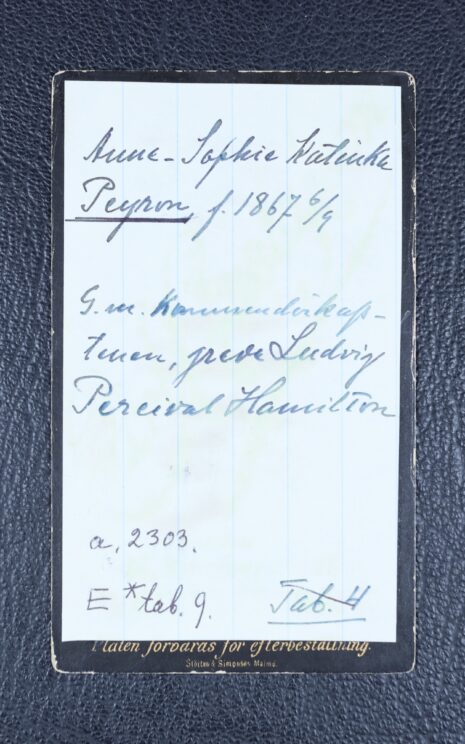 Anna-Sophie Katinka
Peyron, f. 1867 6/9
G. m. Kommendörkap-
tenen, greve Ludvig
Percival Hamilton
a, 2303.
E * tab. 9.
Tab. 4
Platen förvaras för efterbeställning.
Malmö.